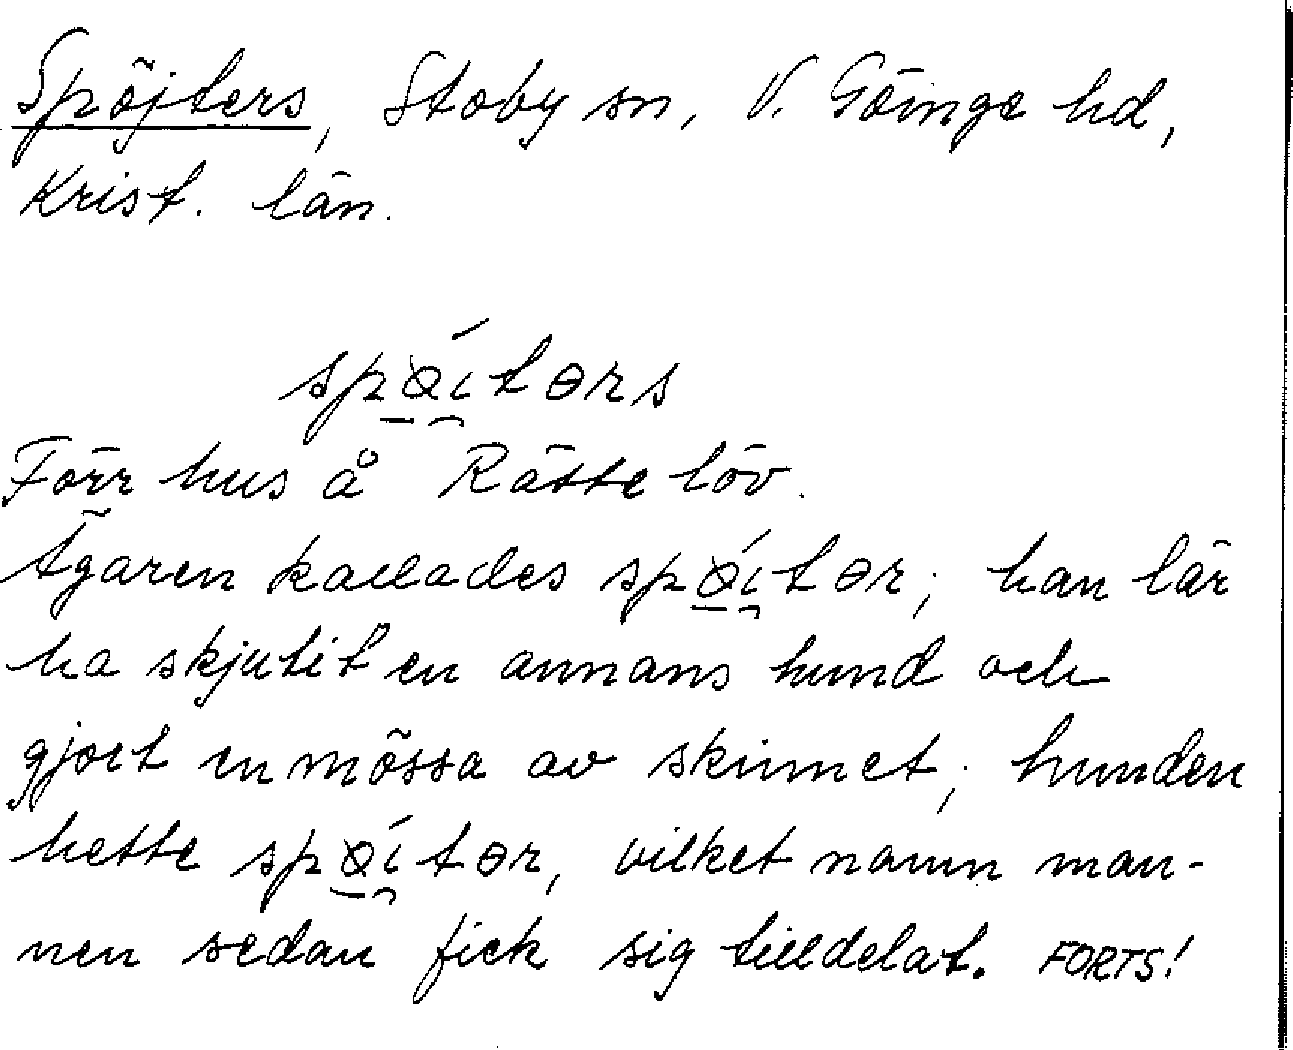 Spöjters, Stoby sn, V. Göinge hd,
Krist. län.
spøítərs
Förr hus å Rättelöv.
Ägaren kallades spøítər; han lär
ha skjutit en annans hund och
gjort en mössa av skinnet; hunden
hette spøítər, vilket namn man-
nen sedan fick sig tilldelat. FORTS!